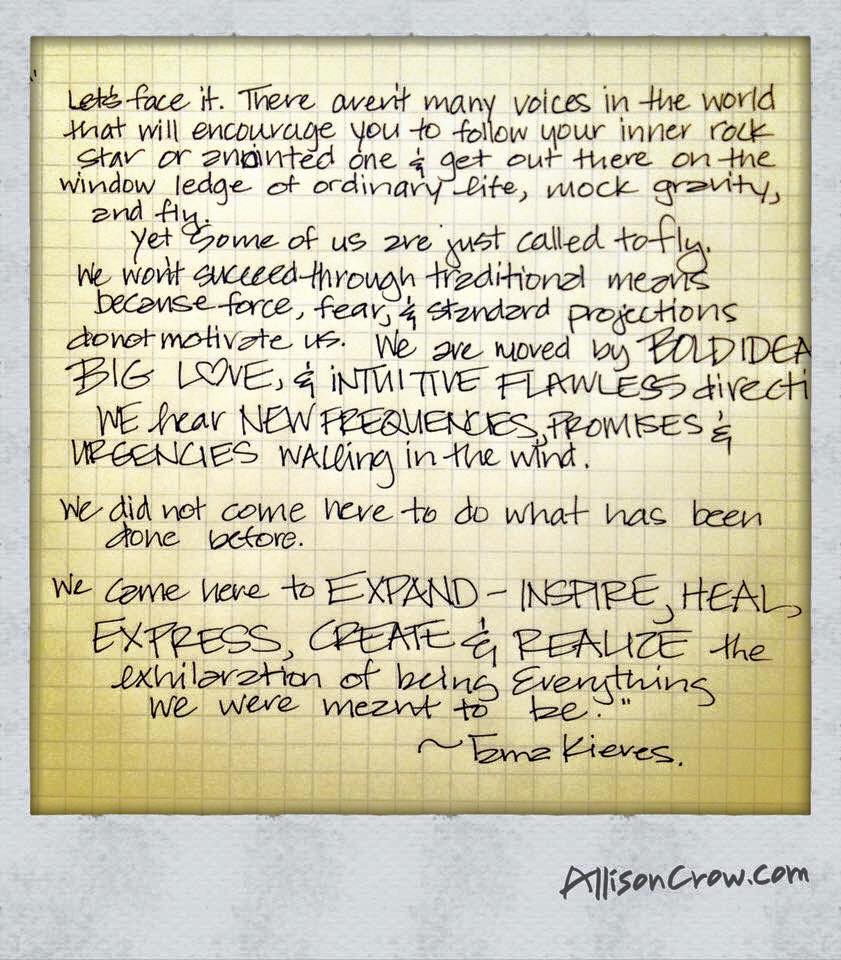 "Let's face it. There aren't many voices in the world
that will encourage you to follow your inner rock
star or anointed one & get out there on the
window ledge of ordinary life, mock gravity,
and fly.
Yet some of us are just called to fly.
We won't succeed through traditional means
because force, fear, & standard projections
do not motivate us. We are moved by BOLD IDEA
BIG LOVE, & INTUITIVE FLAWLESS directi
WE hear NEW FREQUENCIES, PROMISES &
URGENCIES WALLING in the wind.
We did not come here to do what has been
done before.
We came here to EXPAND - INSPIRE, HEAL,
EXPRESS, CREATE & REALIZE the
exhilaration of being Everything
we were meant to be."
~Tama Kieves.
AllisonCrow.com